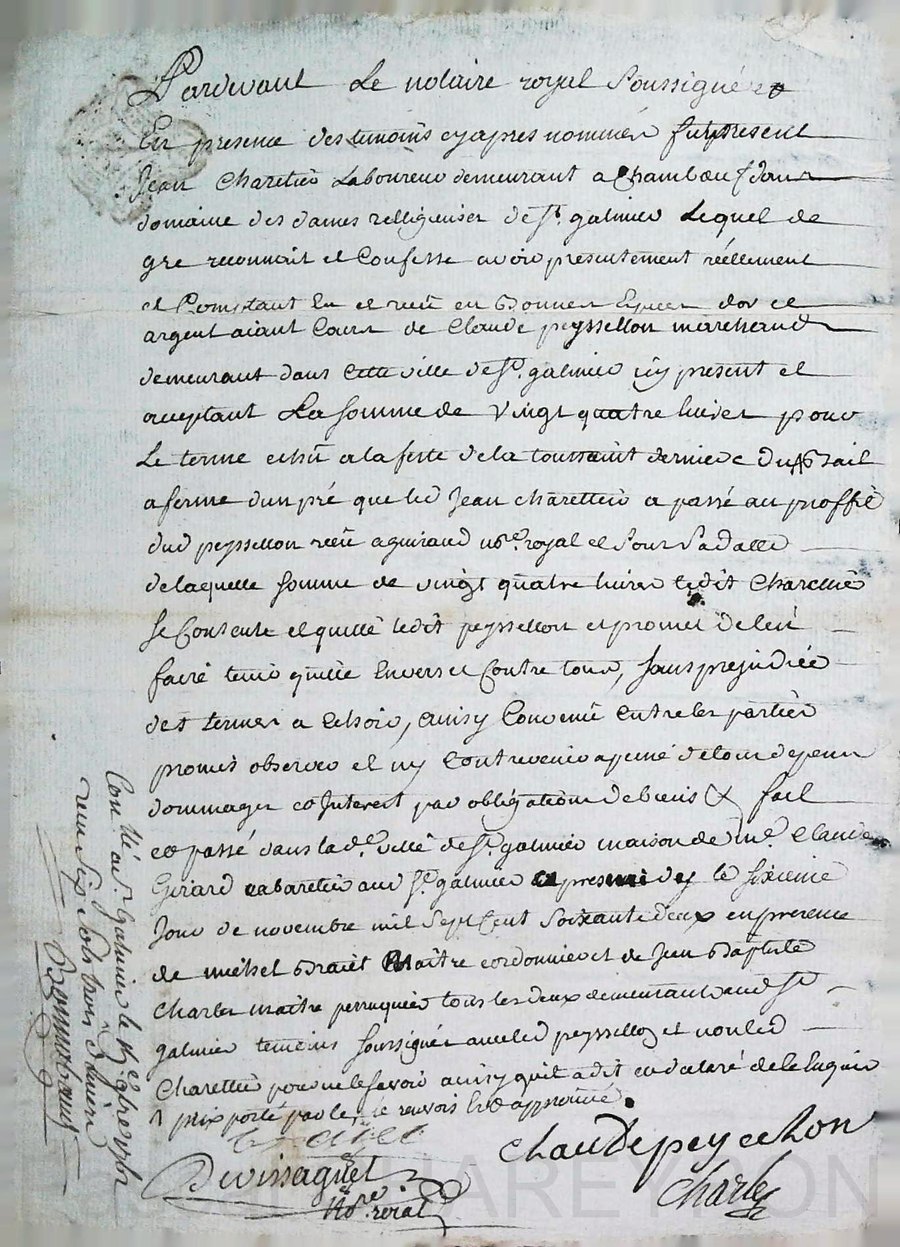 Pardevant Le notaire royal soussigné et
En presence des temoins cyapres nommés fut present
Jean Charetier Laboureur demeurant a Chambeuf dans
domaine des dames relligieuses de St. galmier Lequel de
gre reconnoit et Confesse avoir presentement réellement
et Comptant Eu et receu en Bonnes Especes dor et
argent aiant Cours de Claude peyssellon marchand
demeurant dans cette ville de St. galmier icy present et
acceptant La somme de vingt quatre livres pour
Le terme echû a la feste de la toussaint derniere du Bail
a ferme dun pré que led Jean charettier a passé au proffit
dud peyssellon receu a guiraud nre. royal et sour
delaquelle somme de vingt quatre livres ledit Charettier
se Contente et quitte ledit peyssellon et promet de len
faire tenir quitte Envers et Contre tous, sans prejudice
des termes a Echoir, ainsy Convenu entre les parties
promis observer et ny Contrevenir a peine de tous depens
dommages et Interest par obligation de biens &c fait
et passé dans lad. ville de St. galmier maison de me. Claude
Girard cabaretier aud St. galmier apres midy le sixieme
Jour de novembre mil sept cent soixante deux en presence
de michel Brait Maître cordonnier et de Jean Baptiste
Charles maître perruquier tous les deux demeurants aud St.
galmier temoins soussignés avec led peyssellon et non led
Charettier pour ne le savoir ainsy quil a dit et declaré de ce Enquis
prix porté par le renvois approuvé
chaude peycellon
Devissaguet
Nore. roial
Charles
Con.llé a St. Galmier le 14e. 9bre 1762
receu six sols trois deniers
CHAREYRON